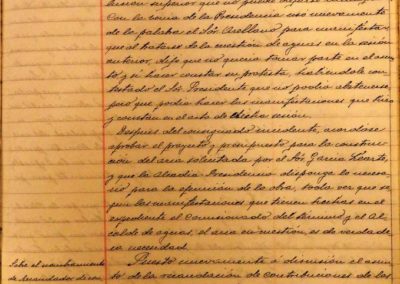 superior que no puede
Con la venia de la Presidencia uso nuevamente
de la palabra el Sor Arellano para manifestar
que al tratarse de la cuestion de aguas en la sesión
anterior, dijo que no queria tomar parte en el asun-
to y si hacer constar su protesta, habiendole con-
testado el Sor Presidente que no podia abstenerse,
pero que podia hacer las manifestaciones que hizo
y constan en el acta de dicha sesión.
Despues del consignado incidente, acordose
aprobar el proyecto y presupuesto para la construc-
cion del area solicitada por el Sor Garcia
y que la Alcaldia Presidencia disponga lo necesa-
rio para la ejecucion de la obra, toda vez que se-
gun las manifestaciones que tienen hechas en el
expediente el Comisionado del y el Al-
calde de aguas, el area en cuestión es de verdade-
ra necesidad.
Puesto nuevamente a discusion el asun-
to de la recaudación de contribuciones de las
Sobre el nombramiento
de Recaudador